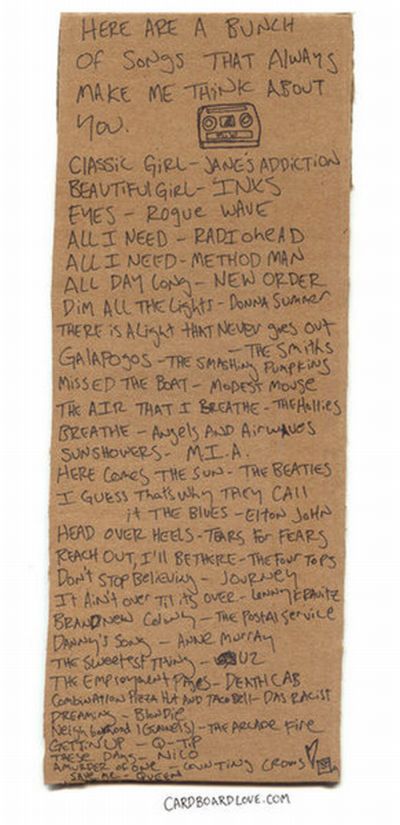 HERE ARE A BUNCH
OF SONGS THAT ALWAYS
MAKE ME THINK ABOUT
YOU.
CLASSIC GIRL - JANE'S ADDICTION
BEAUTIFUL GIRL - INXS
EYES - ROGUE WAVE
ALL I NEED - RADIOHEAD
ALL I NEED - METHOD MAN
ALL DAY LONG - NEW ORDER
DIM ALL THE LIGHTS - DONNA SUMMER
THERE IS A LIGHT THAT NEVER GOES OUT
- THE SMITHS
GALAPOGOS - THE SMASHING PUMPKINS
MISSED THE BOAT - MODEST MOUSE
THE AIR THAT I BREATHE - THE HOLLIES
BREATHE - ANGELS AND AIRWAVES
SUNSHOWERS - M.I.A.
HERE COMES THE SUN - THE BEATLES
I GUESS THAT'S WHY THEY CALL
IT THE BLUES - ELTON JOHN
HEAD OVER HEELS - TEARS FOR FEARS
REACH OUT, I'LL BE THERE - THE FOUR TOPS
DON'T STOP BELIEVING - JOURNEY
IT AIN'T OVER TIL ITS OVER - LENNY KRAVITZ
BRAND NEW COLONY - THE POSTAL SERVICE
DANNY'S SONG - ANNE MURRAY
THE SWEETEST THING - U2
THE EMPLOYMENT PAGES - DEATH CAB
COMBINATION PIZZA HUT AND TACO BELL - DAS RACIST
DREAMING - BLONDIE
NEIGHBORHOOD 1 (TUNNELS) - THE ARCADE FIRE
GETTIN UP - Q-TIP
THESE DAYS - NICO
A MURDER OF ONE - COUNTING CROWS
SAVE ME - QUEEN
CARDBOARDLOVE.COM